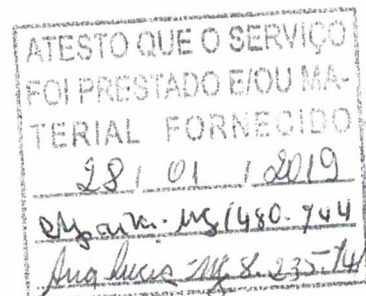 ATESTO QUE O SERVIÇO
FOI PRESTADO E/OU MA-
TERIAL FORNECIDO
28 / 01 / 2019
MG 1480.744
Ana Lucia - MG 8.235.141